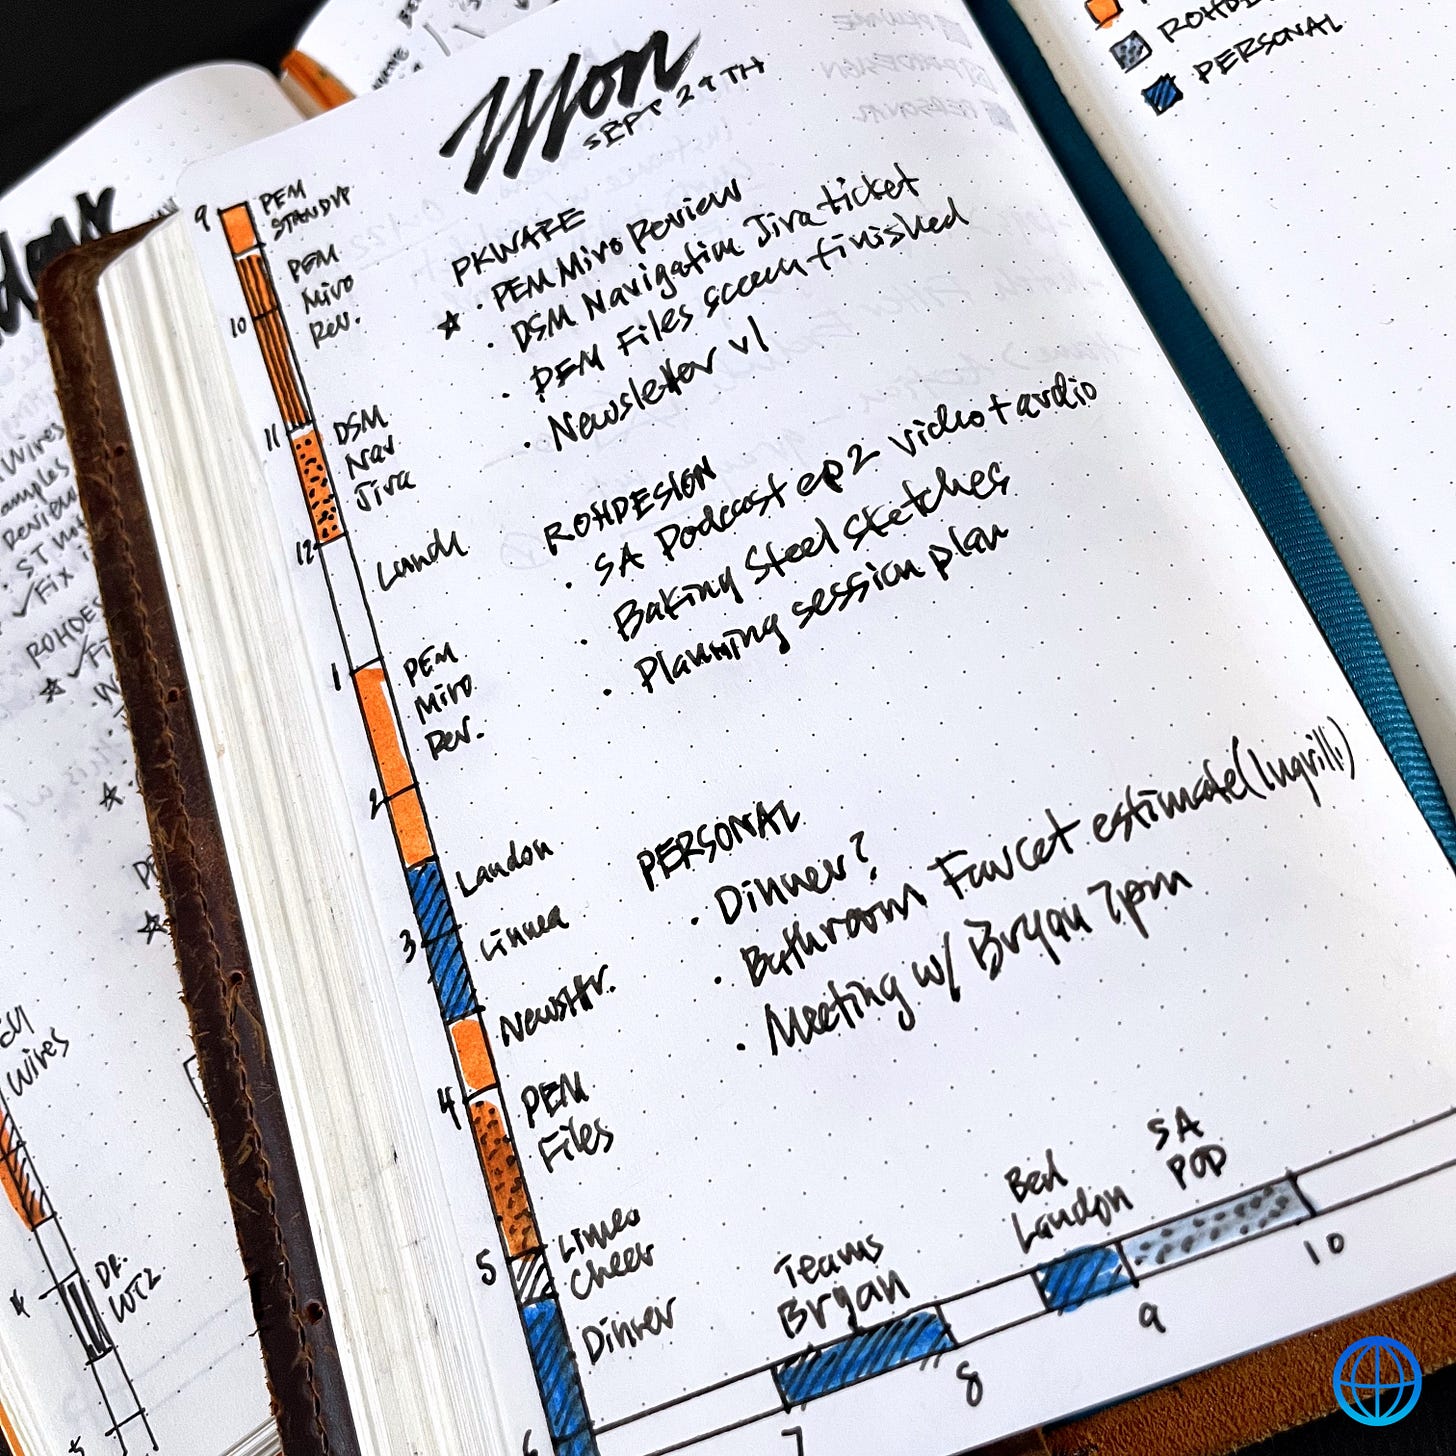 Mon
SEPT 29TH
9
PEM
STANDUP
PEM
Miro
Rev.
10
11
DSM
Nav
Jira
12
Lunch
1
PEM
Miro
Rev.
2
Landon
3
Linnea
Newsltr.
4
PEM
Files
5
Linnea
Cheer
Dinner
6
PKWARE
· PEM Miro Review
☆ · DSM Navigation Jira ticket
· PEM Files screen finished
· Newsletter v1
ROHDESIGN
· SA Podcast ep 2 video + audio
· Baking Steel Sketches
· Planning session plan
PERSONAL
· Dinner?
· Bathroom Faucet estimate (Ingrilli)
· Meeting w/ Bryan 7pm
Teams
Bryan
Bed
Landon
SA
POD
7
8
9
10
PERSONAL
Wires
Review
✓ Fix
Wires
DR.
WTZ
4
5